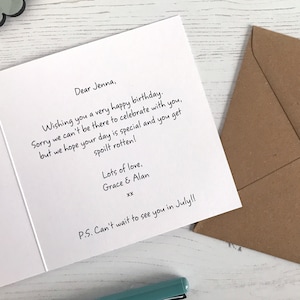 Dear Jenna,
Wishing you a very happy birthday.
Sorry we can't be there to celebrate with you,
but we hope your day is special and you get
spoilt rotten!
Lots of love,
Grace & Alan
xx
P.S. Can't wait to see you in July!!